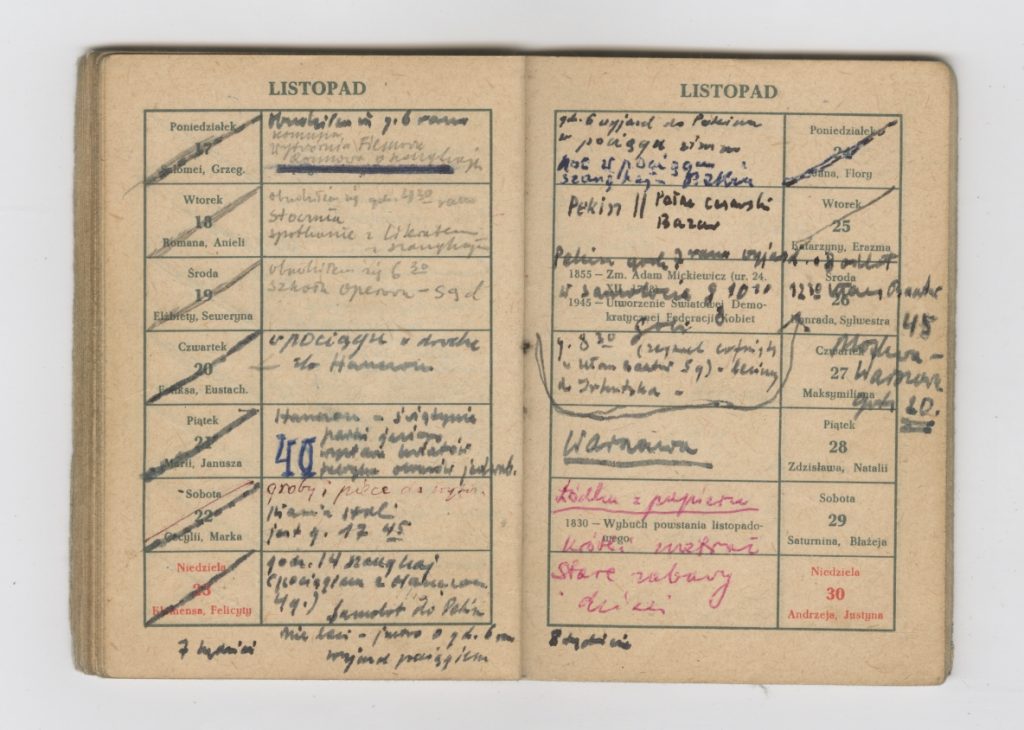 LISTOPAD
Poniedziałek
17
Salomei, Grzeg.
obudziłem się g. 6 rano
komuna
wytwórnia Filmowa
Wtorek
18
Romana, Anieli
obudziłem się godz. 4 30 rano
stocznia
spotkanie z
z szanghaju
Środa
19
Elżbiety, Seweryna
obudziłem się 6 30
szkoła operowa – 5 g d
Czwartek
20
Feliksa, Eustach.
w pociągu w drodze
do Hanczou
Piątek
21
Marii, Janusza
Hanczou – świątynia
40
wystawa kwiatów
fabryka obrazów jedwab.
Sobota
22
Cecylii, Marka
groby i piece do
stali
jest g. 17 45
Niedziela
23
Klemensa, Felicyty
godz. 14 szanghaj
(pociągiem z Hanczou
4 g.)
Samolot do Pekin
nie leci – jutro o gd. 6 rano
wyjazd pociągiem
7 tydzień
LISTOPAD
gd. 6 wyjazd do Pekinu
w pociągu zimno
noc w pociągu
szanghaj
Poniedziałek
24
Jana, Flory
Pekin || Pałac cesarski
Bazar
Wtorek
25
Katarzyny, Erazma
Pekin godz. 7 rano wyjazd . 8 odlot
1855 — Zm. Adam Mickiewicz (ur. 24.
XII. 1798)
w samolocie g 10 30
12 30 Ułan Bator
1945 — Utworzenie Światowej Demo-
kratycznej Federacji Kobiet
Środa
26
Konrada, Sylwestra
45
g. 8 30 (zegarek cofnięty
w Ułan Bator 5 g) – lecimy
do Irkutska –
Czwartek
27
Maksymiliana
Moskwa –
Warszawa
godz 20.
Warszawa
Piątek
28
Zdzisława, Natalii
Łódka z papieru
1830 — Wybuch powstania listopado-
wego
Sobota
29
Saturnina, Błażeja
Stare zabawy
dzieci
Niedziela
30
Andrzeja, Justyna
8 tydzień